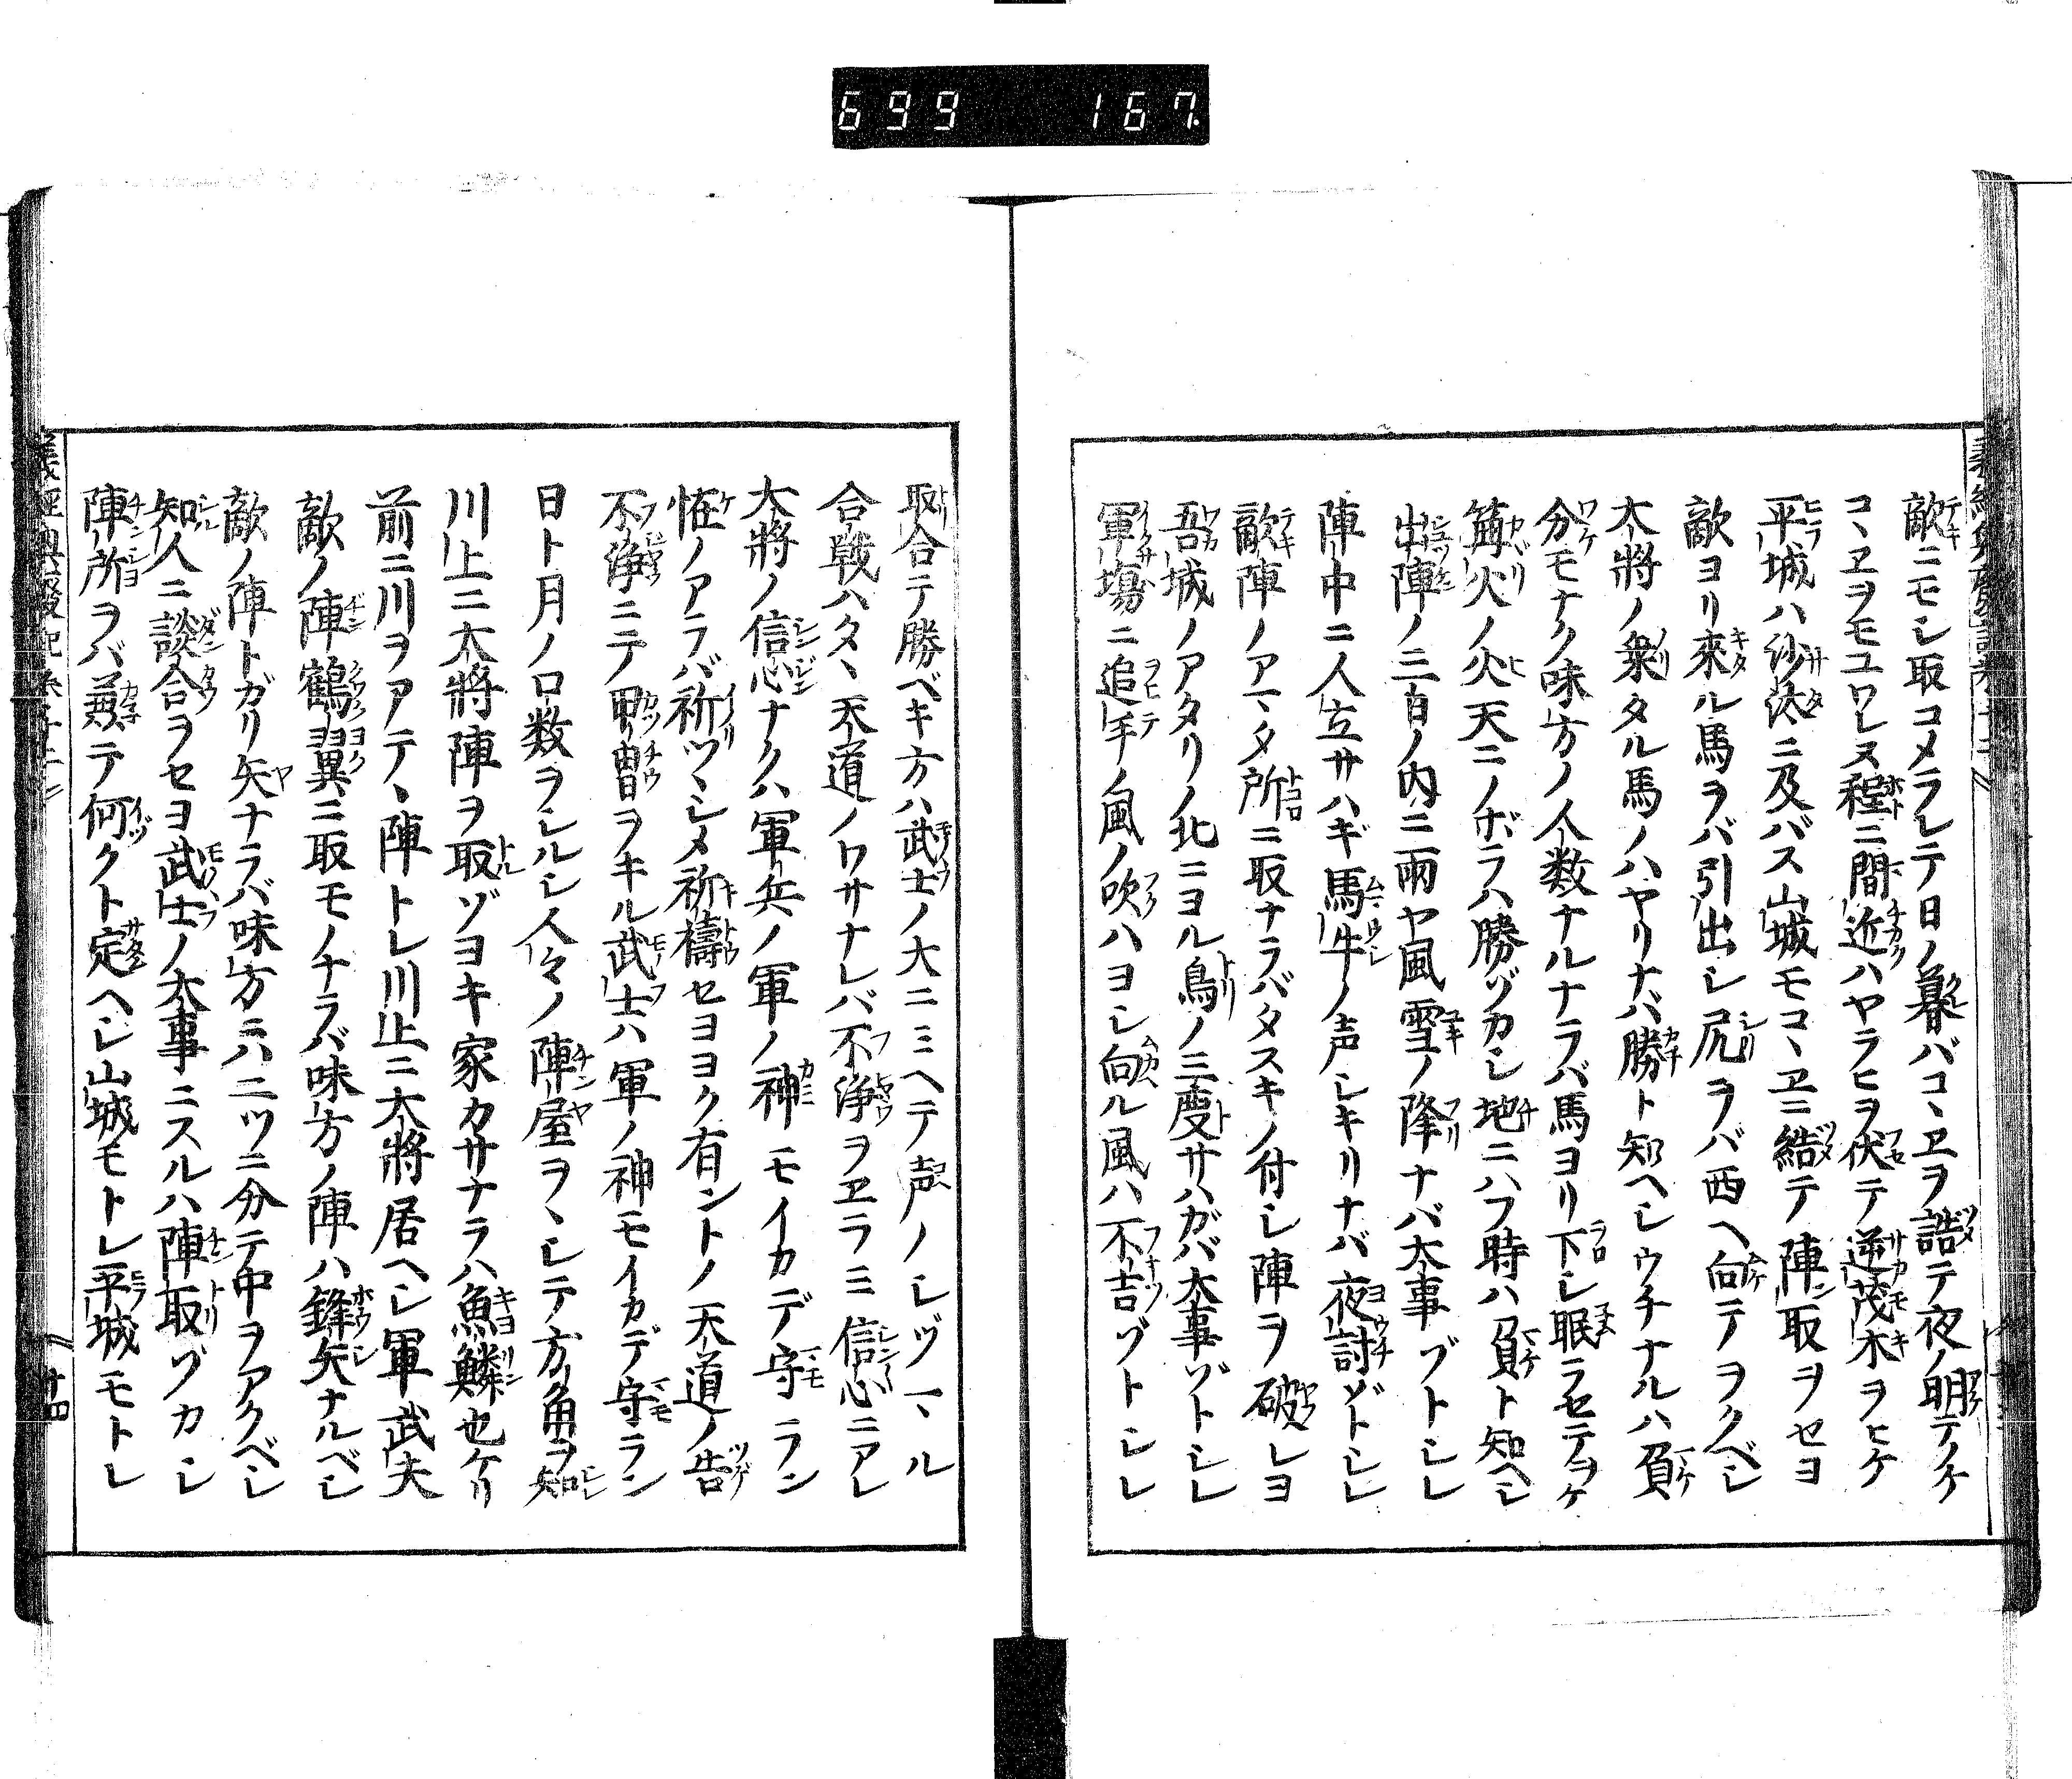 699 167
敵ニモシ取コメラレテ日ノ暮バコヽヱヲ詰テ夜ノ明テノケ
コヽヱヲモユワレヌ程ニ間近ハヤラヒヲ伏テ逆茂木ヲヒケ
平城ハ沙汰ニ及バス山城モコヽヱニ結テ陣取ヲセヨ
敵ヨリ來ル馬ヲバ引出シ尻ヲバ西ヘ向テヲクベシ
大將ノ乗タル馬ノハヤリナバ勝ト知ヘシウチナルハ負
分モナク味方ノ人数ナルナラバ馬ヨリ下シ眠ラセテヲケ
篝火ノ火天ニノボラハ勝ヅカシ地ニハフ時ハ負ト知ヘシ
出陣ノ三日ノ内ニ雨ヤ風雪ノ降ナバ大事ヅトシレ
陣中ニ人立サハギ馬牛ノ声シキリナバ夜討ゾトシレ
敵陣ノアマタ所ニ取ナラバタスキノ付シ陣ヲ破レヨ
吾城ノアタリノ北ニヨル鳥ノ三度サハガバ大事ゾトシレ
軍場ニ追手ノ風ノ吹ハヨシ向ル風ハ不吉ヅトシレ
取合テ勝ベキ方ハ武士ノ大ニミヘテ声ノシヅマル
合戦ハタヽ天道ノワサナレバ不浄ヲヱラミ信心ニアレ
大將ノ信心ナクハ軍兵ノ軍ノ神モイカデ守ラン
怪ノアラバ祈ツヽシメ祈禱セヨヨク有ントノ天道ノ告
不浄ニテ甲冑ヲキル武士ハ軍ノ神モイカデ守ラン
日ト月ノロ数ヲシルシ人々ノ陣屋ヲヽシテ方角ヲ知
川上ニ大將陣ヲ取ゾヨキ家カサナラハ魚鱗也ケリ
前ニ川ヲアテヽ陣トレ川上ニ大將居ヘシ軍武夫
敵ノ陣鶴翼ニ取モノナラバ味方ノ陣ハ鋒矢ナルベシ
敵ノ陣トガリ矢ナラバ味方ニハ二ツニ分テ中ヲアクベシ
知人ニ談合ヲセヨ武士ノ大事ニスルハ陣取ヅカシ
陣所ヲバ兼テ何クト定ヘシ山城モトレ平城モトレ
廿四